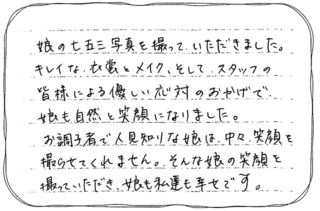 娘の七五三写真を撮って、いただきました。
キレイな、衣裳とメイク、そして、スタッフの
皆様による優しい応対のおかげで、
娘も自然と笑顔になりました。
お調子者で人見知りな娘は、中々、笑顔を
撮らせてくれません。そんな娘の笑顔を
撮っていただき、娘も私達も幸せです。